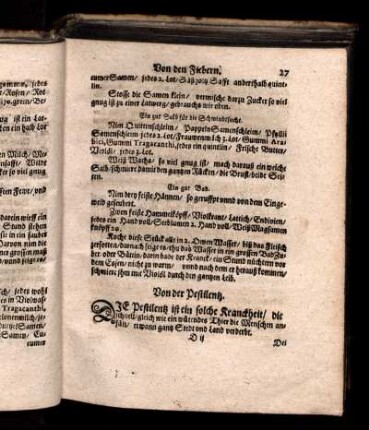 Von den Fiebern. 27
eumerSamen/ jedes 2. Lot/ Süßholtz Safft anderthalb quint-
lin.
Stosse die Samen klein/ vermische darzu Zucker so viel
gnug ist zu einer Latwerg/ gebrauchs wie oben.
Ein gut Salb für die Schwindsucht.
Nim Quittenschleim/ PappelnSamenschleim/ Psyllii
Samenschleim jedes 2. Lot/ Frauwenmilch 3. Lot/ Gummi Ara-
bici, Gummi Tragacanthi, jedes ein quintlin/ Frische Butter/
Violöl/ jedes 3. Lot.
Weiß Wachs/ so viel gnug ist/ mach darauß ein welche
Salb/ schmiere damit den gantzen Rücken/ die Brust/ beide Sei-
ten.
Ein gut Bad.
Nim drey feiste Hännen/ so gerupfft unnd von dem Einge-
weid geseubert.
Zween feiste Hammelköpff/ Violkraut/ Lattich/ Endivien/
jedes ein Hand voll/ Seeblumen 2. Hand voll/ Weiß Magsamen
knöpff 20.
Koche diese Stück alle in 2. Omen Wasser/ biß das Fleisch
zersotten/ darnach seige es/ thu das Wasser in ein grossen BadZu-
ber oder Bütein/ darin bade der Kranck/ ein Stund nüchtern vor
dem Essen/ nicht zu warm/ unnd nach dem er herauß kommen/
schmiere ihm mit Violöl durch den gantzen Leib.
Von der Pestilentz.
DIE Pestilentz ist ein solche Kranckheit/ die
schnell/ gleich wie ein wütendes Thier die Menschen an-
fält/ etwann gantz Stedt und Land verderbt.
D ij
Dei